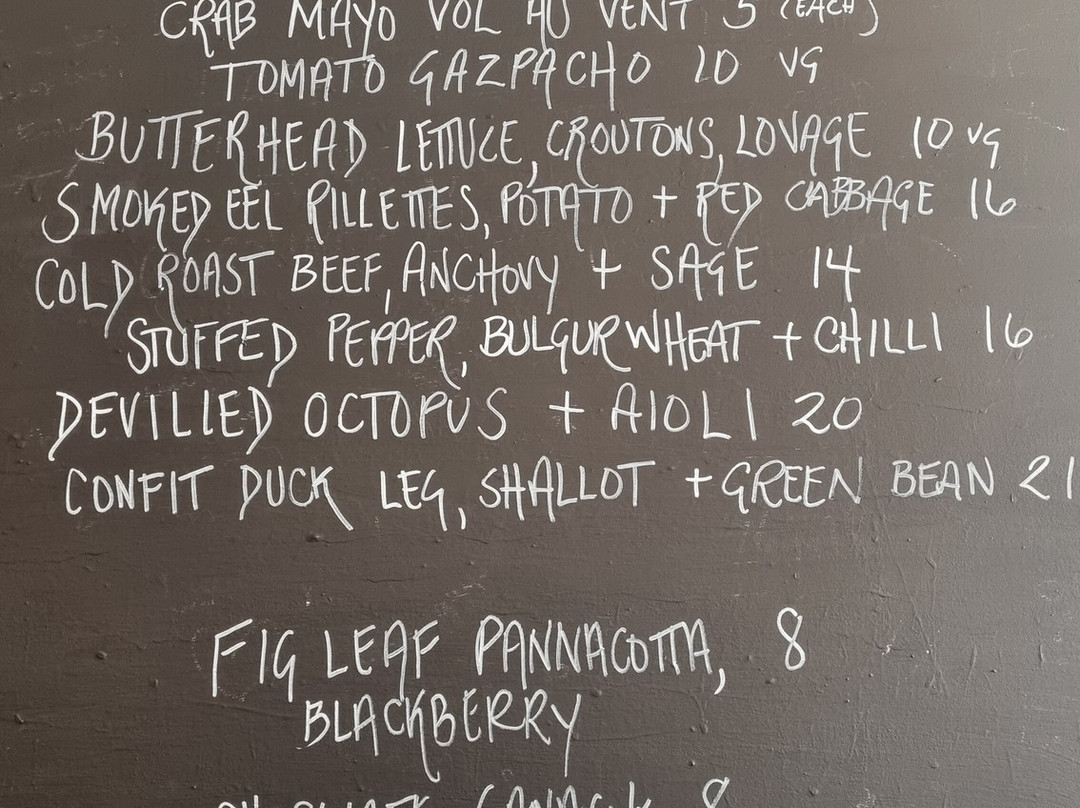 CRAB MAYO VOL AU VENT 5 (EACH)
TOMATO GAZPACHO 10 VG
BUTTERHEAD LETTUCE, CROUTONS, LOVAGE 10 VG
SMOKED EEL RILLETTES, POTATO + RED CABBAGE 16
COLD ROAST BEEF, ANCHOVY + SAGE 14
STUFFED PEPPER, BULGUR WHEAT + CHILLI 16
DEVILLED OCTOPUS + AIOLI 20
CONFIT DUCK LEG, SHALLOT + GREEN BEAN 21
FIG LEAF PANNACOTTA, 8
BLACKBERRY
8